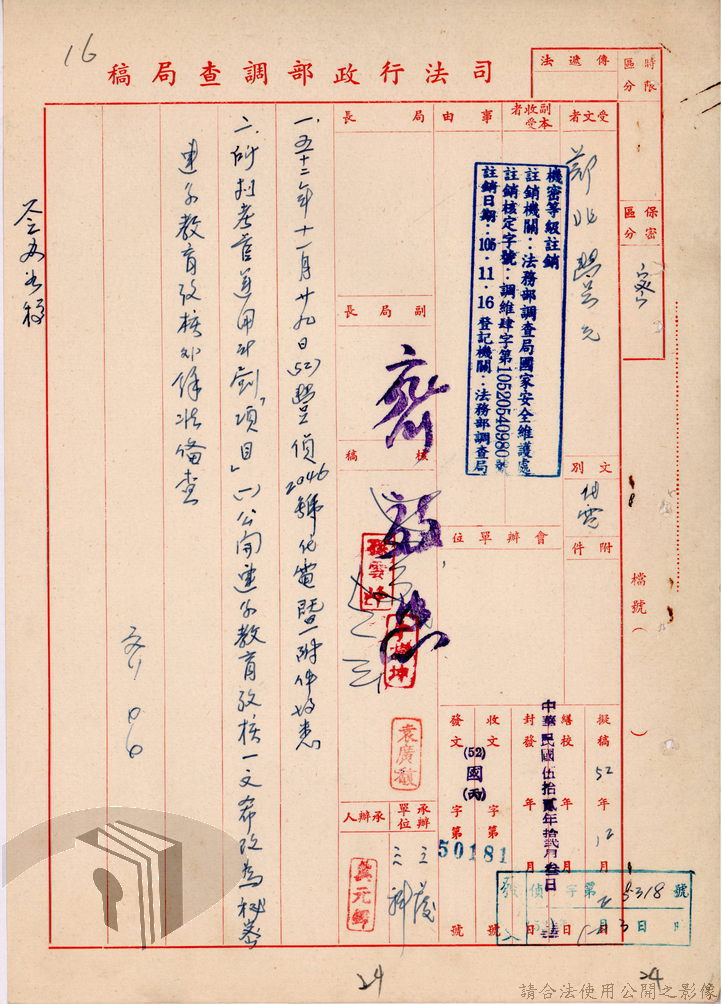 16
司法行政部調查局稿
時限
區分
傳遞法
保密
區分
密
受文者
副本
收受者
事由
局長
副局長
核稿
文別
代電
附件
會辦單位
檔號（ ）
機密等級註銷
註銷機關：法務部調查局國家安全維護處
註銷核定字號：調維肆字第10520540980號
註銷日期：105.11.16 登記機關：法務部調查局
擬稿 52年12月
繕校 年 月 日
封發 年 月 日
中華民國伍拾貳年拾貳月叁日
收文 字第 號
發文 字第 號
(52)
國
(丙)
50181
偵字第5318號
3日
承辦單位
三科
承辦人
袁廣
元卿
一、五十二年十一月廿九日(52)豐偵2046號代電暨附件均悉
二、所列考管運用計劃「項目」(一)公開連子教育攷核一文希改為秘密
連子教育攷核外餘准備查
24
24
請合法使用公開之影像